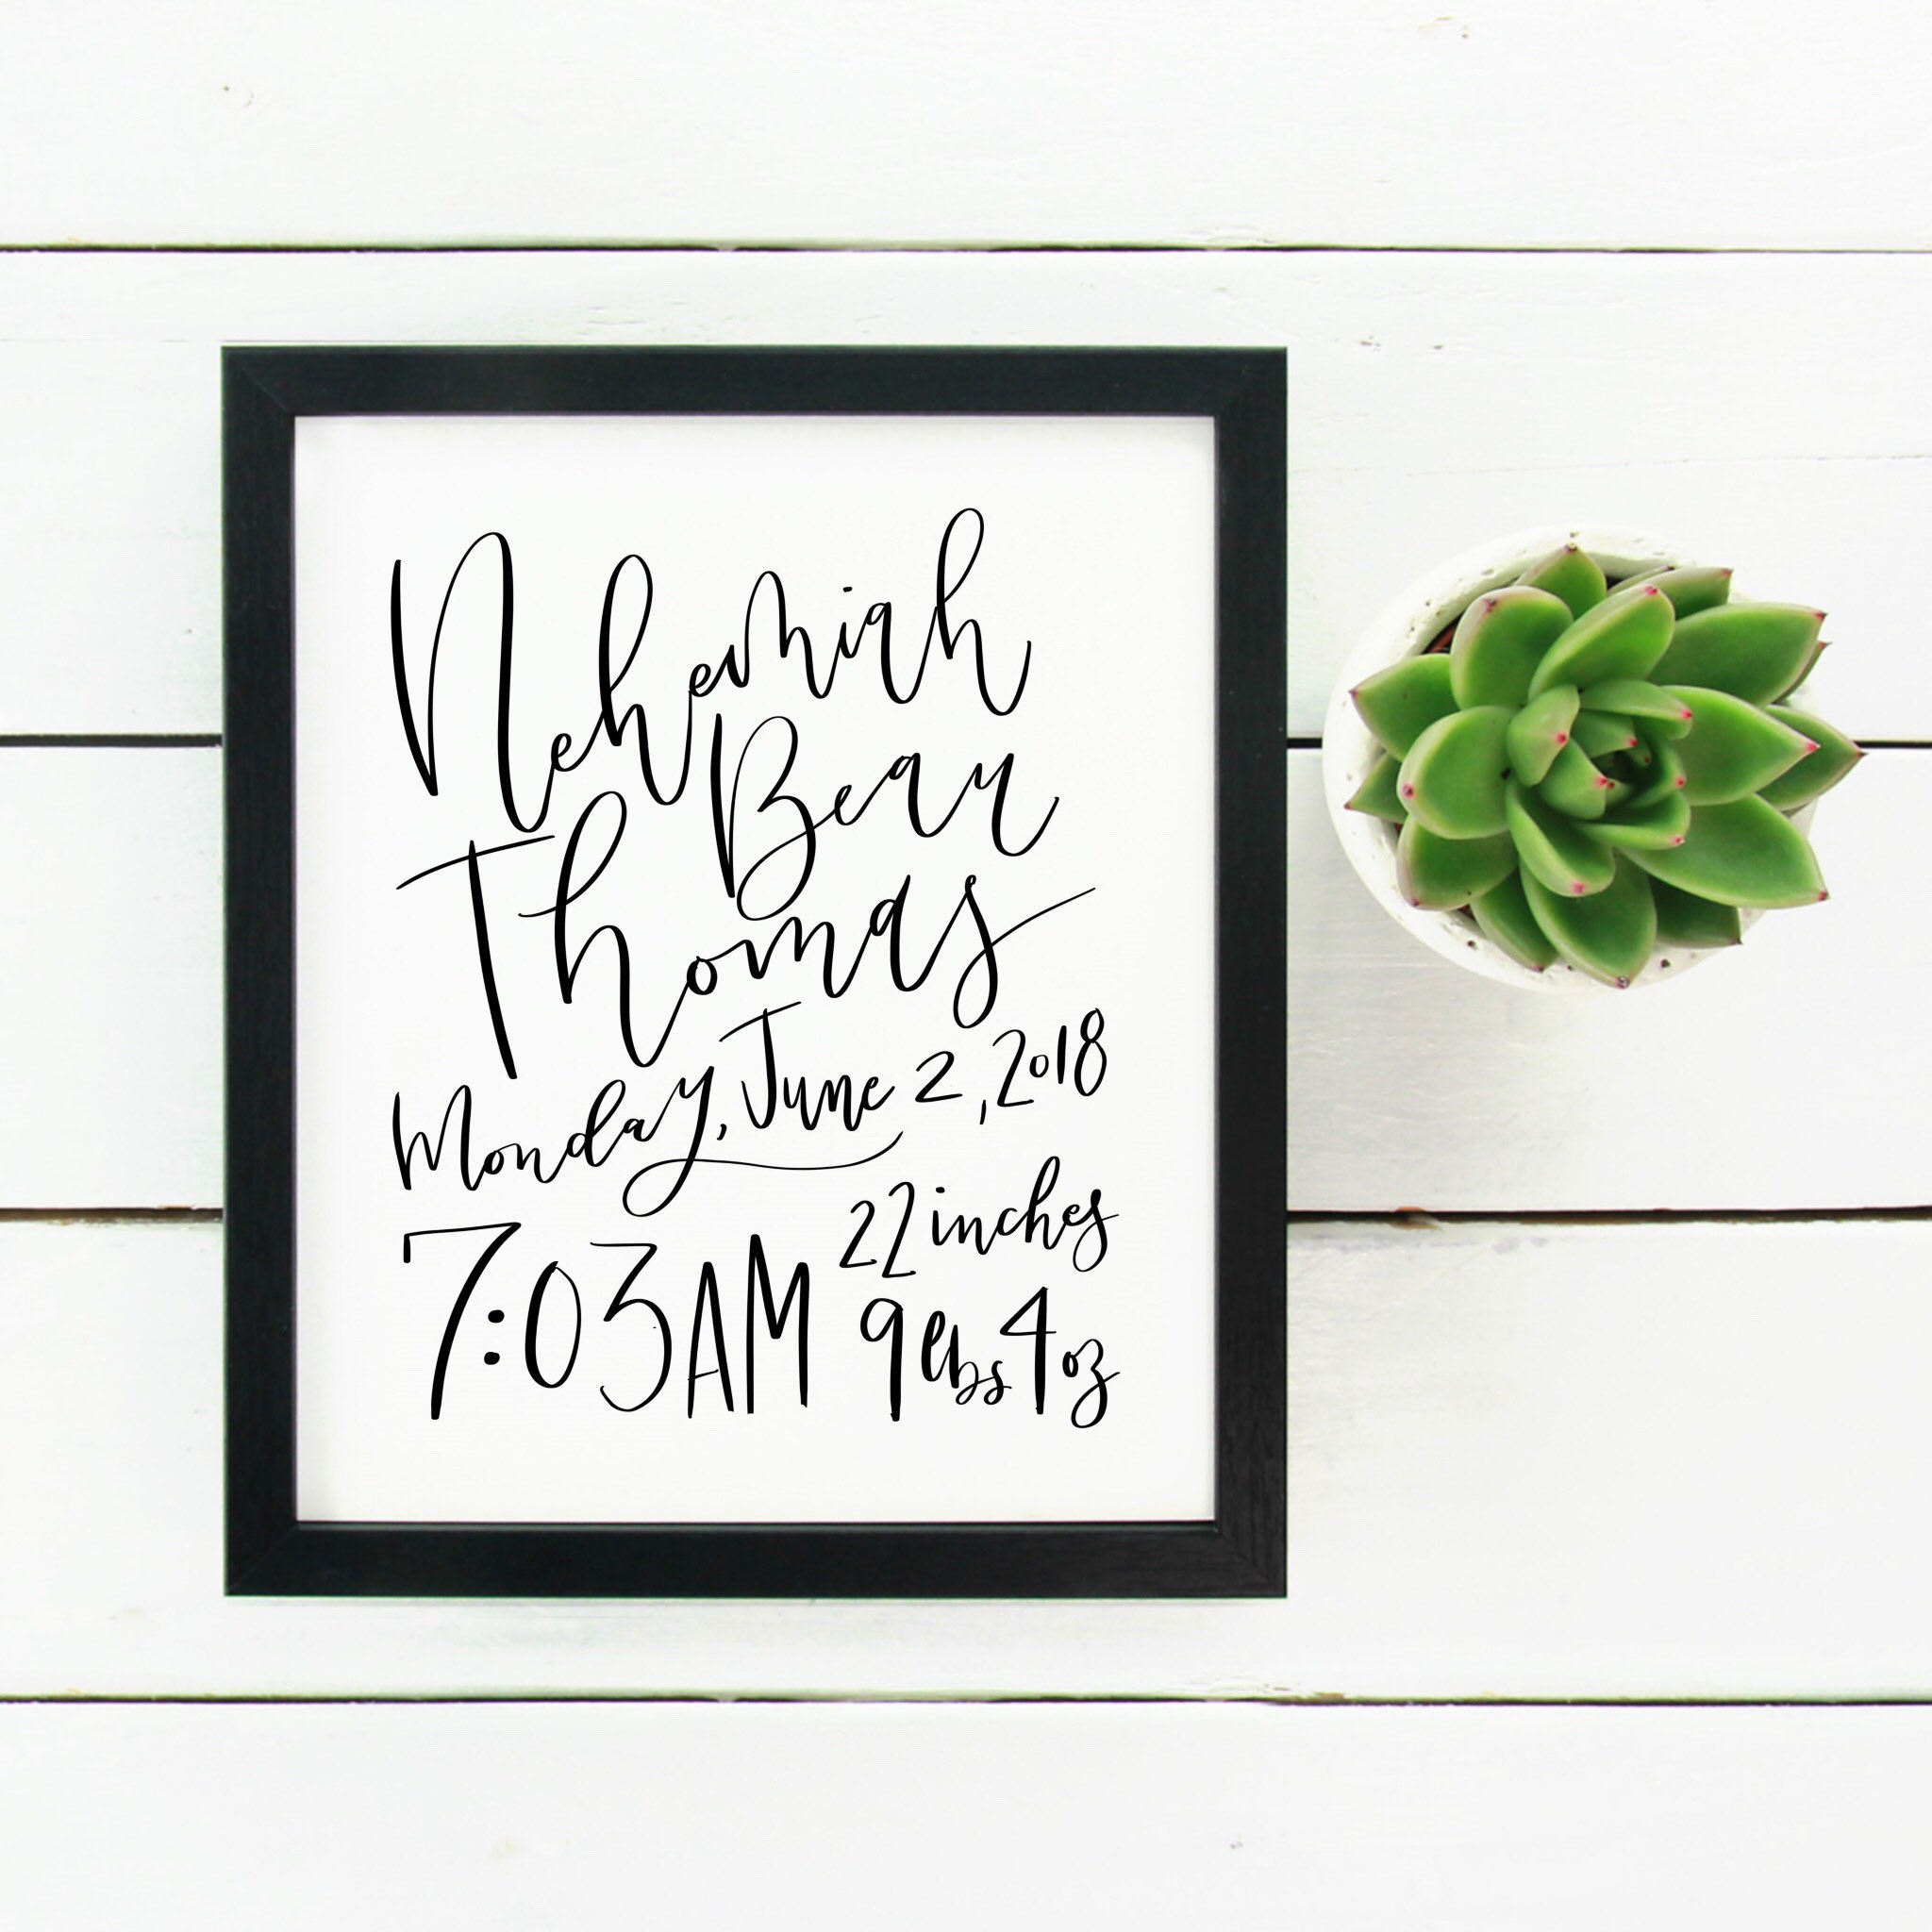 Nehemiah
Bear
Thomas
Monday, June 2, 2018
7:03 AM
22 inches
9 lbs 4 oz